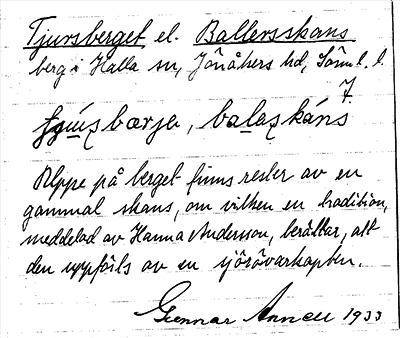 Tjursberget el. Ballersskans
berg i Halla sn, Jönåkers hd, Södml. l.
7.
balaʂkáns
Uppe på berget finns rester av en
gammal skans, om vilken en tradition,
meddelad av Hanna Andersson, berättar, att
den uppförts av en sjörövarkapten.
Gunnar Annell 1933